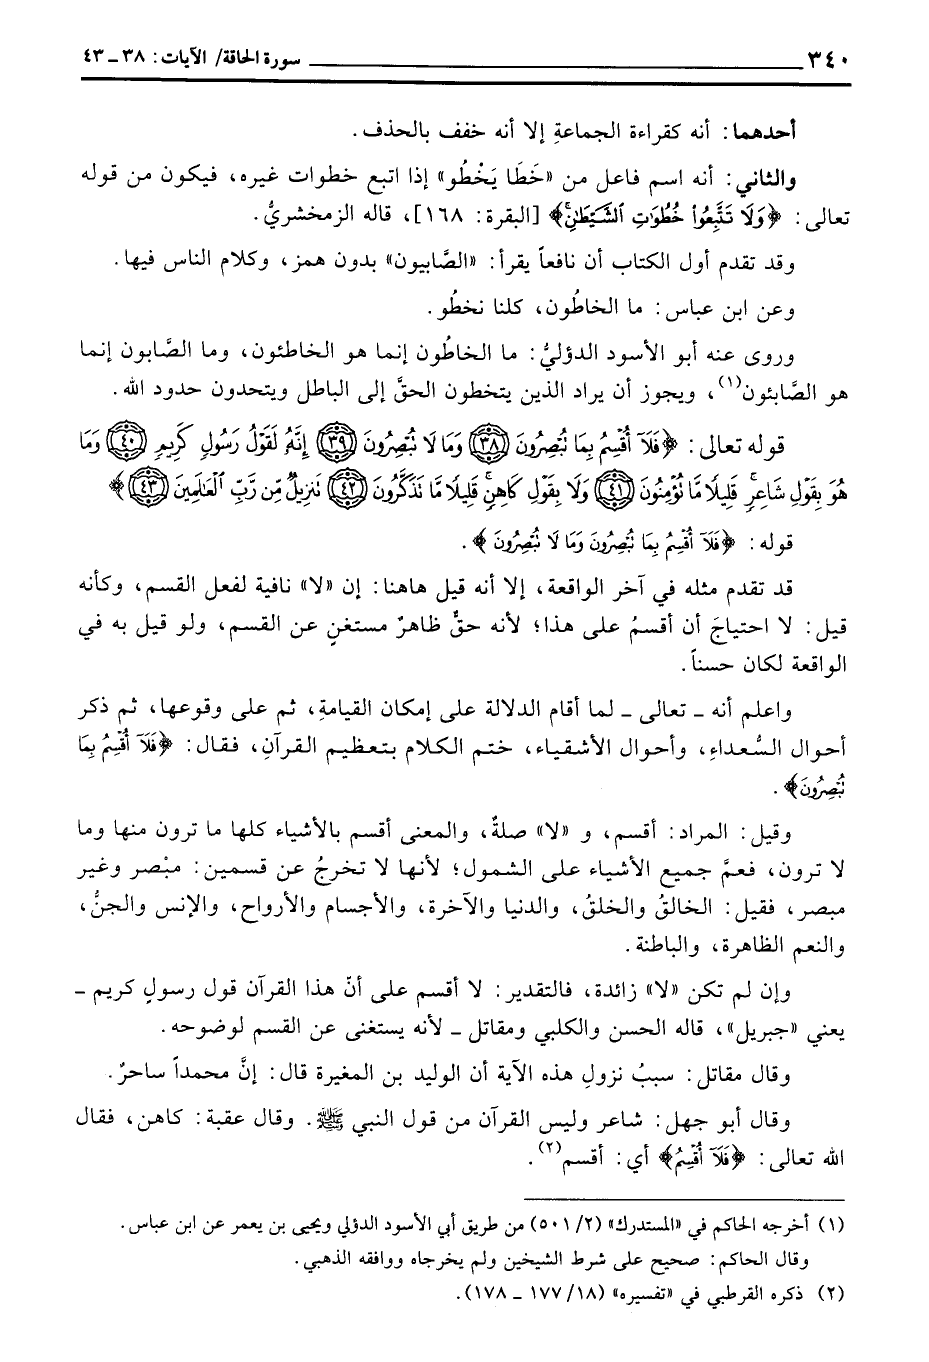 ٣٤٠ سورة الحاقة/ الآيات: ٣٨ ــ ٤٣
أحدهما: أنه كقراءة الجماعةِ إلا أنه خفف بالحذف.
والثاني: أنه اسم فاعل من «خَطَا يَخْطُو» إذا اتبع خطوات غيره، فيكون من قوله
تعالى: ﴿وَلَا تَتَّبِعُوا۟ خُطُوَٰتِ ٱلشَّيْطَٰنِۚ﴾ [البقرة: ١٦٨]، قاله الزمخشريُّ.
وقد تقدم أول الكتاب أن نافعاً يقرأ: «الصَّابيون» بدون همز، وكلام الناس فيها.
وعن ابن عباس: ما الخاطُون، كلنا نخطُو.
وروى عنه أبو الأسود الدؤليُّ: ما الخاطُون إنما هو الخاطئون، وما الصَّابون إنما
هو الصَّابئون(١)، ويجوز أن يراد الذين يتخطون الحقَّ إلى الباطل ويتحدون حدود الله.
قوله تعالى: ﴿فَلَآ أُقْسِمُ بِمَا تُبْصِرُونَ ﴿٣٨﴾ وَمَا لَا تُبْصِرُونَ ﴿٣٩﴾ إِنَّهُۥ لَقَوْلُ رَسُولٍ كَرِيمٍ ﴿٤٠﴾ وَمَا
هُوَ بِقَوْلِ شَاعِرٍۚ قَلِيلًا مَّا تُؤْمِنُونَ ﴿٤١﴾ وَلَا بِقَوْلِ كَاهِنٍۚ قَلِيلًا مَّا تَذَكَّرُونَ ﴿٤٢﴾ تَنزِيلٌ مِّن رَّبِّ ٱلْعَٰلَمِينَ ﴿٤٣﴾ ﴾
قوله: ﴿فَلَآ أُقْسِمُ بِمَا تُبْصِرُونَ وَمَا لَا تُبْصِرُونَ ﴾.
قد تقدم مثله في آخر الواقعة، إلا أنه قيل هاهنا: إن «لا» نافية لفعل القسم، وكأنه
قيل: لا احتياجَ أن أقسمُ على هذا؛ لأنه حقٌّ ظاهرٌ مستغنٍ عن القسم، ولو قيل به في
الواقعة لكان حسناً.
واعلم أنه ـ تعالى ـ لما أقام الدلالة على إمكان القيامةِ، ثم على وقوعها، ثم ذكر
أحوال السُّعداءِ، وأحوال الأشقياء، ختم الكلام بتعظيم القرآنِ، فقال: ﴿فَلَآ أُقْسِمُ بِمَا
تُبْصِرُونَ﴾.
وقيل: المراد: أقسم، و «لا» صلةٌ، والمعنى أقسم بالأشياء كلها ما ترون منها وما
لا ترون، فعمَّ جميع الأشياء على الشمول؛ لأنها لا تخرجُ عن قسمين: مبْصر وغير
مبصر، فقيل: الخالقُ والخلقُ، والدنيا والآخرة، والأجسام والأرواح، والإنس والجنُّ،
والنعم الظاهرة، والباطنة.
وإن لم تكن «لا» زائدة، فالتقدير: لا أقسم على أنّ هذا القرآن قول رسولٍ كريم ـ
يعني «جبريل»، قاله الحسن والكلبي ومقاتل ـ لأنه يستغنى عن القسم لوضوحه.
وقال مقاتل: سببُ نزولِ هذه الآية أن الوليد بن المغيرة قال: إنَّ محمداً ساحرٌ.
وقال أبو جهل: شاعر وليس القرآن من قول النبي ﷺ. وقال عقبة: كاهن، فقال
الله تعالى: ﴿فَلَآ أُقْسِمُ﴾ أي: أقسم(٢).
(١) أخرجه الحاكم في «المستدرك» (٢/ ٥٠١) من طريق أبي الأسود الدؤلي ويحيى بن يعمر عن ابن عباس.
وقال الحاكم: صحيح على شرط الشيخين ولم يخرجاه ووافقه الذهبي.
(٢) ذكره القرطبي في «تفسيره» (١٨/ ١٧٧ ــ ١٧٨).